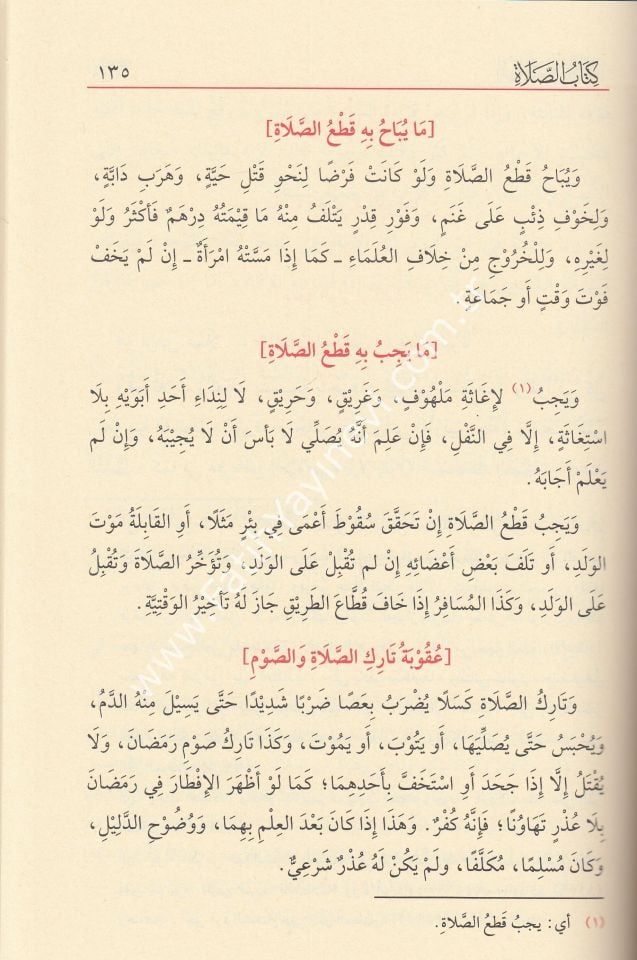 كِتَابُ الصَّلَاةِ ١٣٥
[مَا يُبَاحُ بِهِ قَطْعُ الصَّلَاةِ]
وَيُبَاحُ قَطْعُ الصَّلَاةِ وَلَوْ كَانَتْ فَرْضًا لِنَحْوِ قَتْلِ حَيَّةٍ، وَهَرَبِ دَابَّةٍ،
وَلِخَوْفِ ذِئْبٍ عَلَى غَنَمٍ، وَفَوْرِ قِدْرٍ يَتْلَفُ مِنْهُ مَا قِيْمَتُهُ دِرْهَمٌ فَأَكْثَرُ وَلَوْ
لِغَيْرِهِ، وَلِلْخُرُوْجِ مِنْ خِلَافِ العُلَمَاءِ ـ كَمَا إِذَا مَسَّتْهُ امْرَأَةٌ ـ إِنْ لَمْ يَخَفْ
فَوْتَ وَقْتٍ أَو جَمَاعَةٍ.
[مَا يَجِبُ بِهِ قَطْعُ الصَّلَاةِ]
وَيَجِبُ (١) لِإِغَاثَةِ مَلْهُوْفٍ، وَغَرِيْقٍ، وَحَرِيْقٍ، لَا لِنِدَاءِ أَحَدِ أَبَوَيْهِ بِلَا
اسْتِغَاثَةٍ، إِلَّا فِي النَّفْلِ، فَإِنْ عَلِمَ أَنَّهُ يُصَلِّي لَا بَأْسَ أَنْ لَا يُجِيْبَهُ، وَإِنْ لَم
يَعْلَمْ أَجَابَهُ.
وَيَجِبُ قَطْعُ الصَّلَاةِ إِنْ تَحَقَّقَ سُقُوْطَ أَعْمَى فِي بِئْرٍ مَثَلًا، أَوِ القَابِلَةُ مَوْتَ
الوَلَدِ، أَو تَلَفَ بَعْضِ أَعْضَائِهِ إِنْ لم تُقْبِلْ عَلَى الوَلَدِ، وَتُؤَخِّرُ الصَّلَاةَ وَتُقْبِلُ
عَلَى الوَلَدِ، وَكَذَا المُسَافِرُ إِذَا خَافَ قُطَّاعَ الطَّرِيْقِ جَازَ لَهُ تَأْخِيْرُ الوَقْتِيَّةِ.
[عُقُوْبَةُ تَارِكِ الصَّلَاةِ وَالصَّوْمِ]
وَتَارِكُ الصَّلَاةِ كَسَلًا يُضْرَبُ بِعَصًا ضَرْبًا شَدِيْدًا حَتَّى يَسِيْلَ مِنْهُ الدَّمُ،
وَيُحْبَسُ حَتَّى يُصَلِّيَهَا، أَو يَتُوْبَ، أَو يَمُوْتَ، وَكَذَا تَارِكُ صَوْمِ رَمَضَانَ، وَلَا
يُقْتَلُ إِلَّا إِذَا جَحَدَ أَو اسْتَخَفَّ بِأَحَدِهِمَا؛ كَمَا لَوْ أَظْهَرَ الإِفْطَارَ فِي رَمَضَانَ
بِلَا عُذْرٍ تَهَاوُنًا؛ فَإِنَّهُ كُفْرٌ. وَهَذَا إِذَا كَانَ بَعْدَ العِلْمِ بِهِمَا، وَوُضُوْحِ الدَّلِيْلِ،
وَكَانَ مُسْلِمًا، مُكَلَّفًا، ولَمْ يَكُنْ لَهُ عُذْرٌ شَرْعِيٌّ.
(١) أي: يجبُ قَطعُ الصَّلَاةِ.